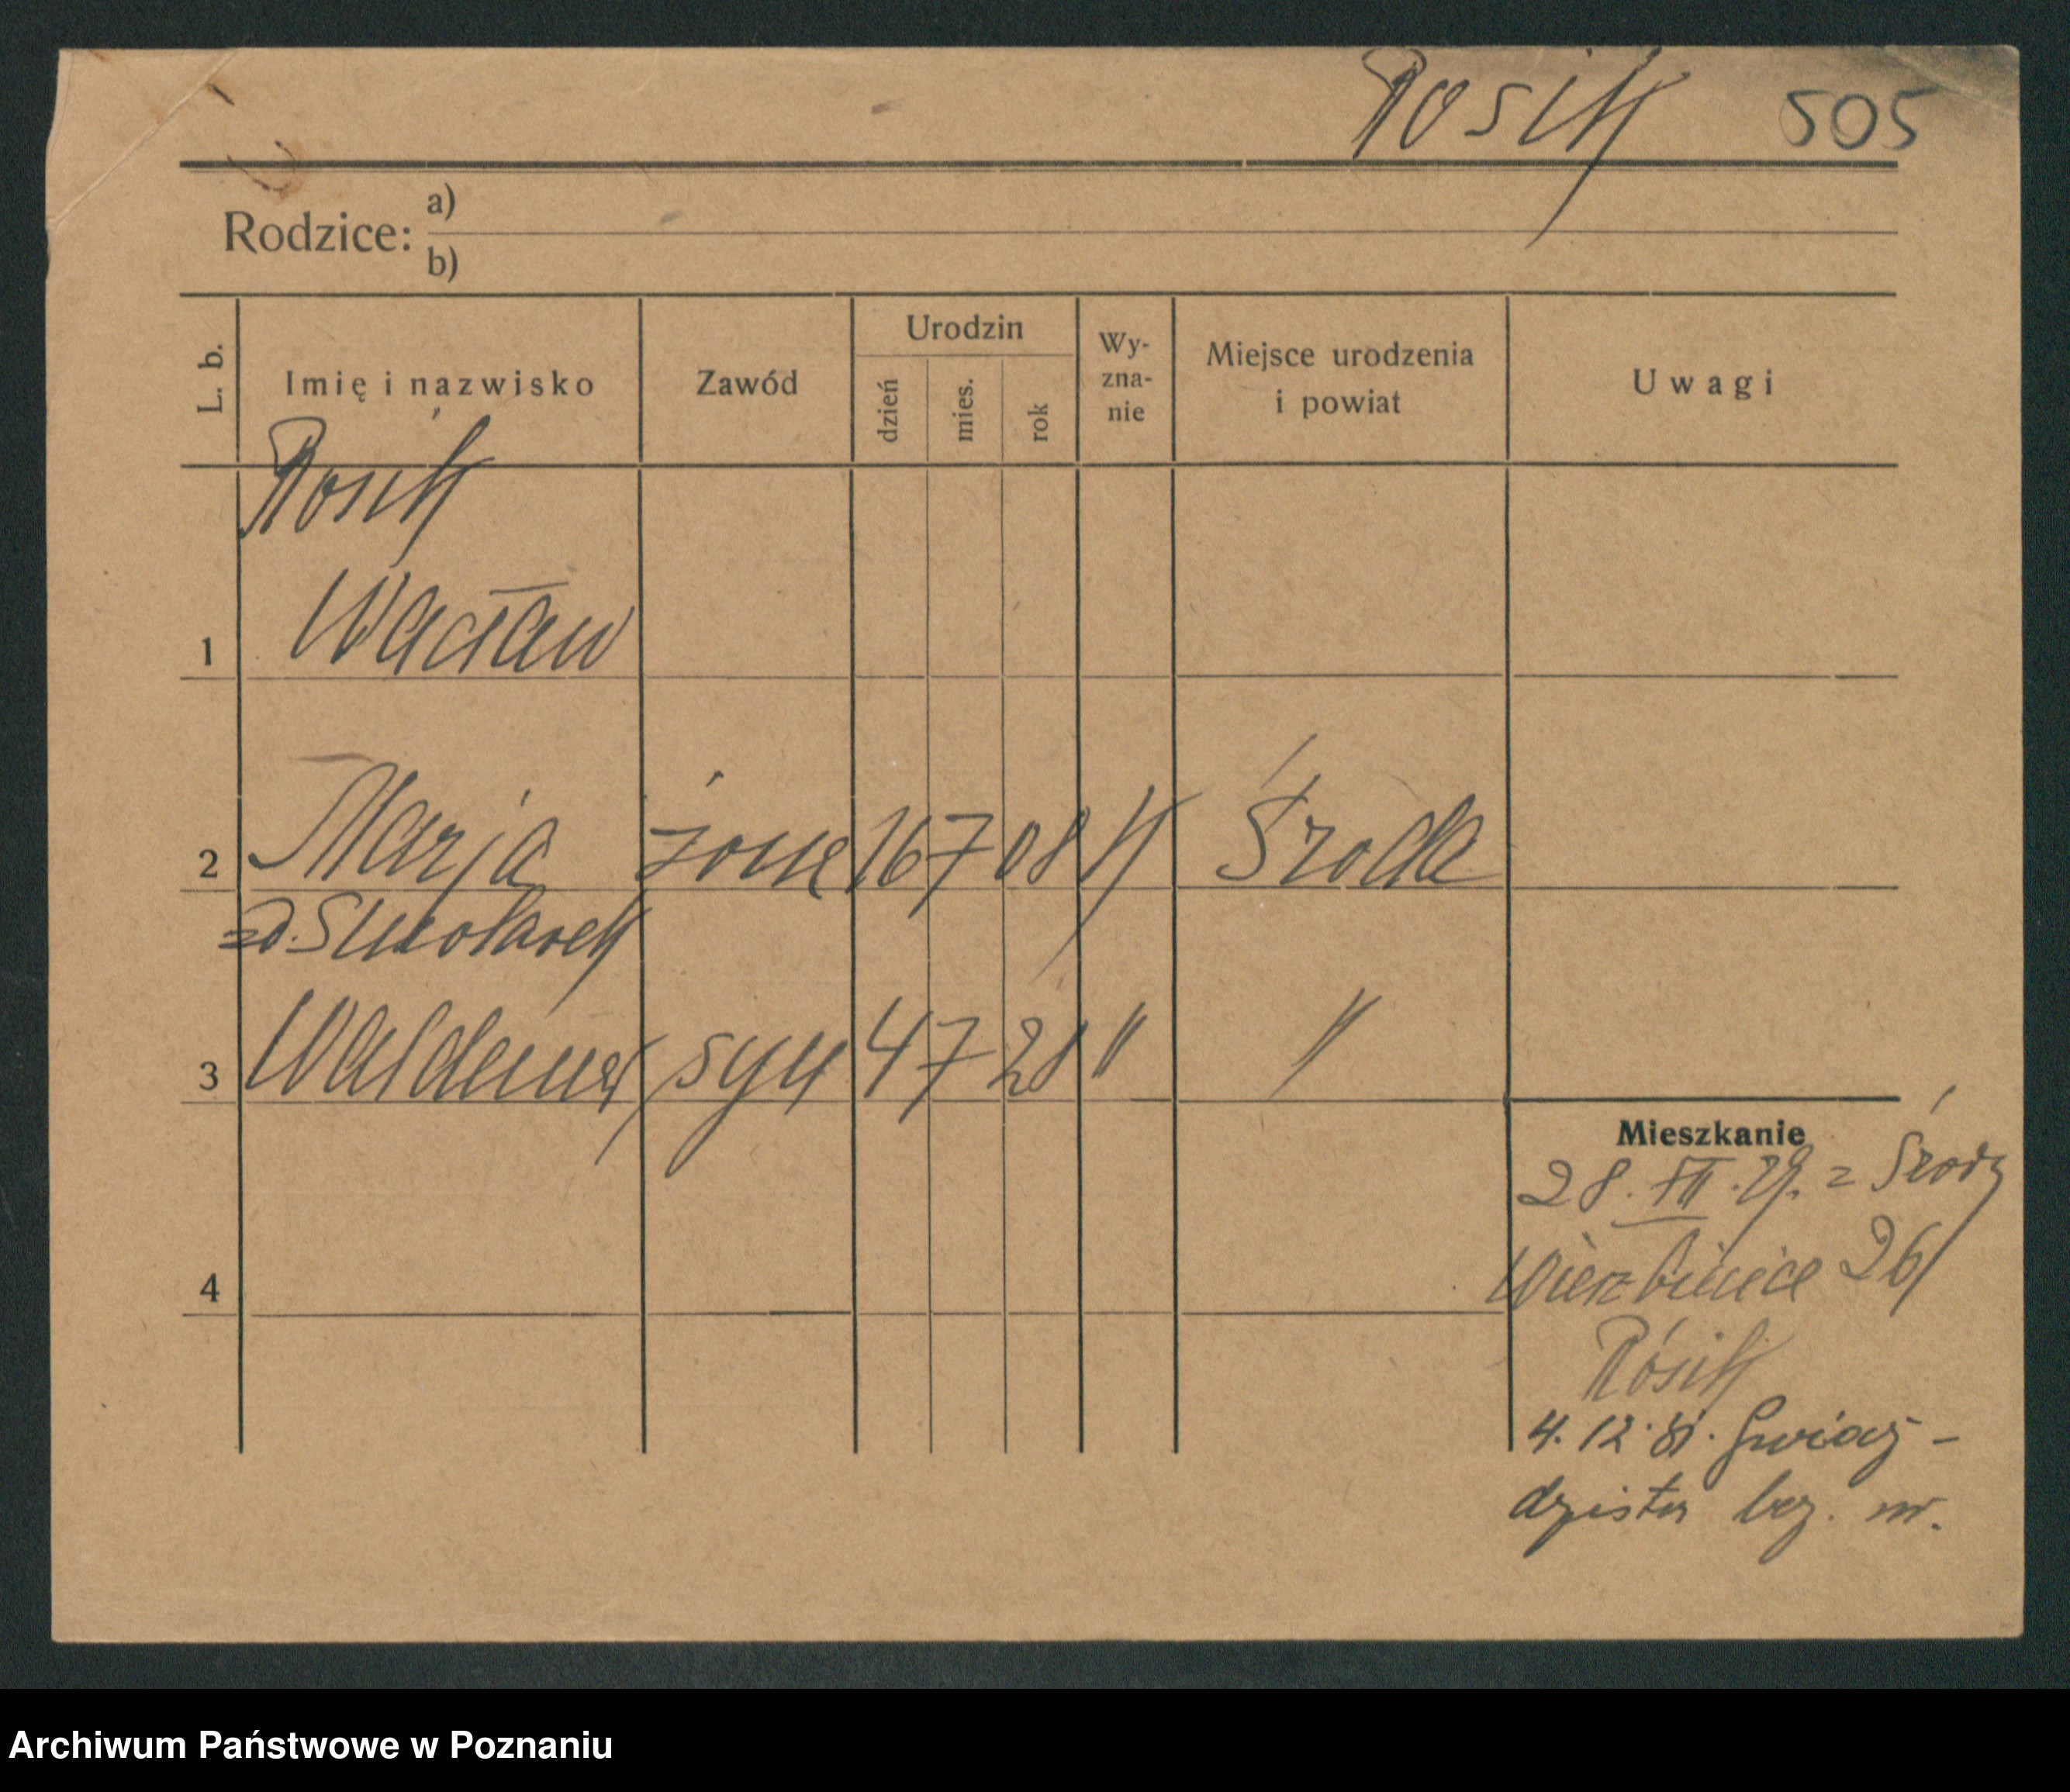 Rosik 505
Rodzice: a)
b)
L. b. Imię i nazwisko Zawód Urodzin dzień mies. rok Wy-zna-nie Miejsce urodzenia i powiat Uwagi
Rosik
1 Wacław
2 Marja żona 16 7 08 k Środa
zd. Smolarek
3 Waldemar syn 4 7 28 " "
Mieszkanie
28. XII. 29. z Środy
Wierzbięcice 26
Rosik
4
4. 12. 31. Gwiaź-
dzista bez. nr.
Archiwum Państwowe w Poznaniu